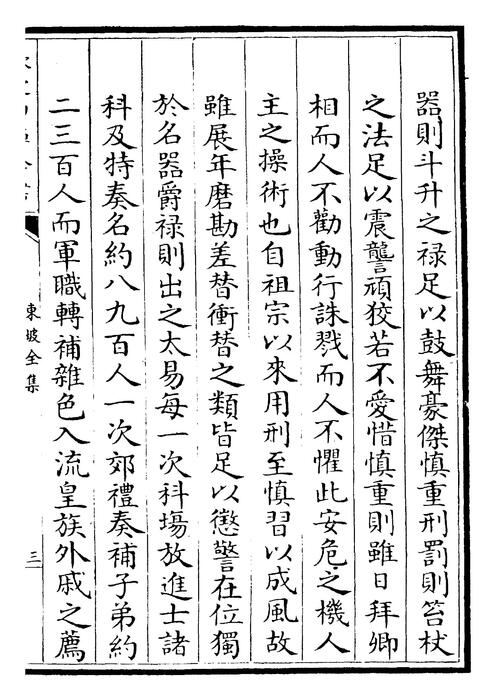 器則斗升之禄足以鼓舞豪傑慎重刑罰則笞杖
之法足以震讋頑狡若不愛惜慎重則雖日拜卿
相而人不勸動行誅戮而人不懼此安危之機人
主之操術也自祖宗以來用刑至慎習以成風故
雖展年磨勘差替衝替之類皆足以懲警在位獨
於名器爵禄則出之太易每一次科塲放進士諸
科及特奏名約八九百人一次郊禮奏補子弟約
二三百人而軍職轉補雜色入流皇族外戚之薦
東坡全集
三